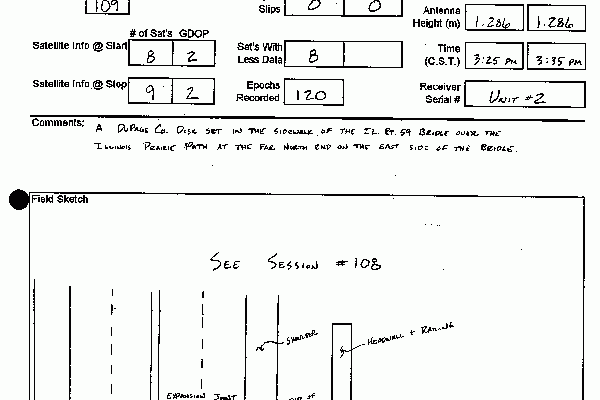 109 Slips 0 0 Antenna Height (m) 1.286 1.286
# of Sat's GDOP
Satellite Info @ Start 8 2 Sat's With Less Data 8 Time (C.S.T.) 3:25 PM 3:35 PM
Satellite Info @ Stop 9 2 Epochs Recorded 120 Receiver Serial # UNIT #2
Comments: A DUPAGE CO. DISK SET IN THE SIDEWALK OF THE IL RT. 59 BRIDGE OVER THE
ILLINOIS PRAIRIE PATH AT THE FAR NORTH END ON THE EAST SIDE OF THE BRIDGE.
Field Sketch
SEE SESSION #108
SHOULDER HEADWALL + RAILING
EXPANSION JOINT OF